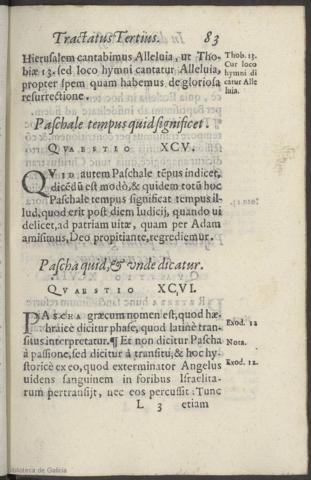 Tractatus Tertius. 83
Hierusalem cantabimus Alleluia, ut Tho-
biæ 13. sed loco hymni cantatur Alleluia,
propter spem quam habemus de gloriosa
resurrectione.
Thob. 13.
Cur loco
hymni di
catur Alle
luia.
Paschale tempus quid significet.
QVAESTIO XCV.
QVID autem Paschale tẽpus indicet,
dicẽdũ est modò, & quidem totũ hoc
Paschale tempus significat tempus il-
lud, quod erit post diem Iudicij, quando ui
delicet, ad patriam uitæ, quam per Adam
amisimus, Deo propitiante, regrediemur.
Pascha quid, & unde dicatur.
QVAESTIO XCVI.
PASCHA græcum nomen est, quod hæ-
braicè dicitur phase, quod latinè tran-
situs interpretatur. ¶ Et non dicitur Pascha
à passione, sed dicitur à transitu, & hoc hy-
storicè ex eo, quod exterminator Angelus
uidens sanguinem in foribus Israelita-
rum pertransijt, nec eos percussit: Tunc
Exod. 12
Nota.
Exod. 12.
L 3 etiam
Biblioteca de Galicia